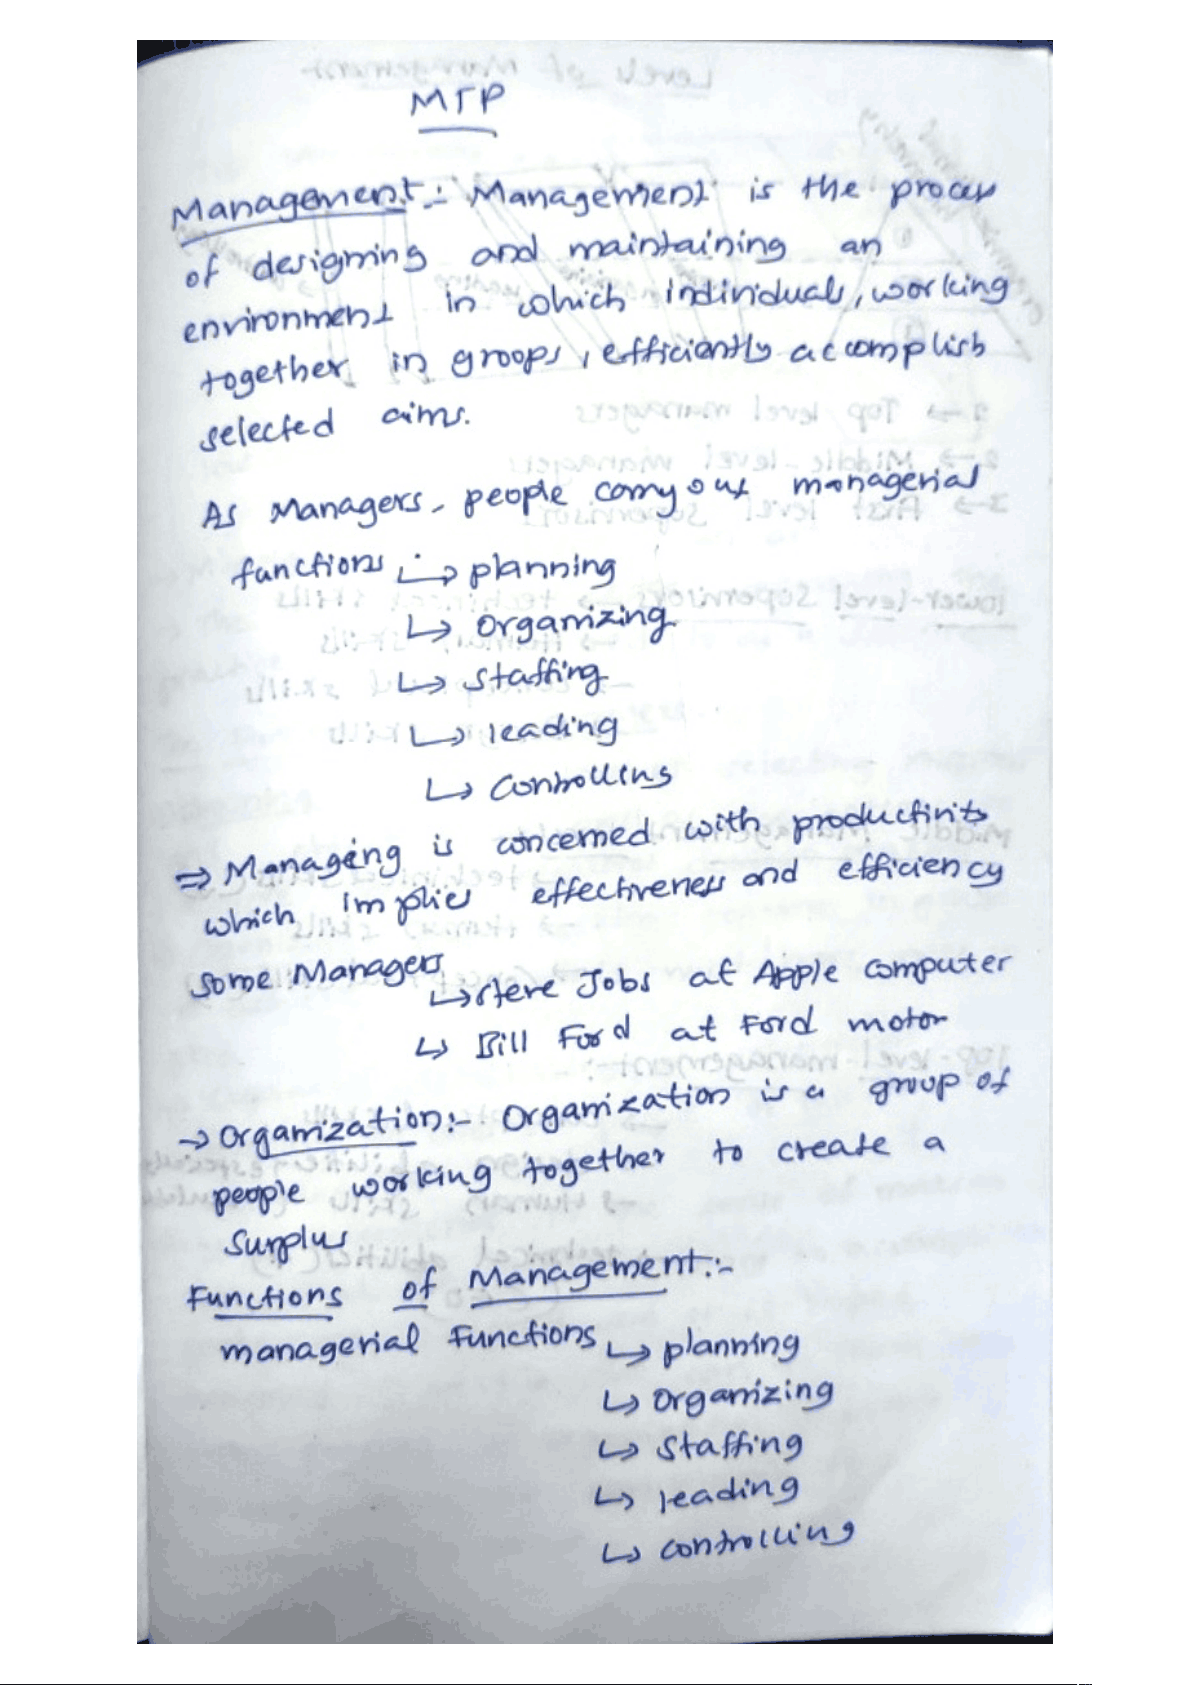 MTP
Management:- Management is the process
of designing and maintaining an
environment in which individuals, working
together in groups, efficiently accomplish
selected aims.
As Managers, people carry out managerial
functions :↳ planning
↳ Organizing
↳ Staffing
↳ leading
↳ Controlling
⇒ Managing is concerned with productivity
which implies effectiveness and efficiency
Some Managers
↳ Steve Jobs at Apple computer
↳ Bill Ford at Ford motor
→ Organization:- Organization is a group of
people working together to create a
Surplus
Functions of Management:-
managerial Functions ↳ planning
↳ Organizing
↳ Staffing
↳ leading
↳ controlling